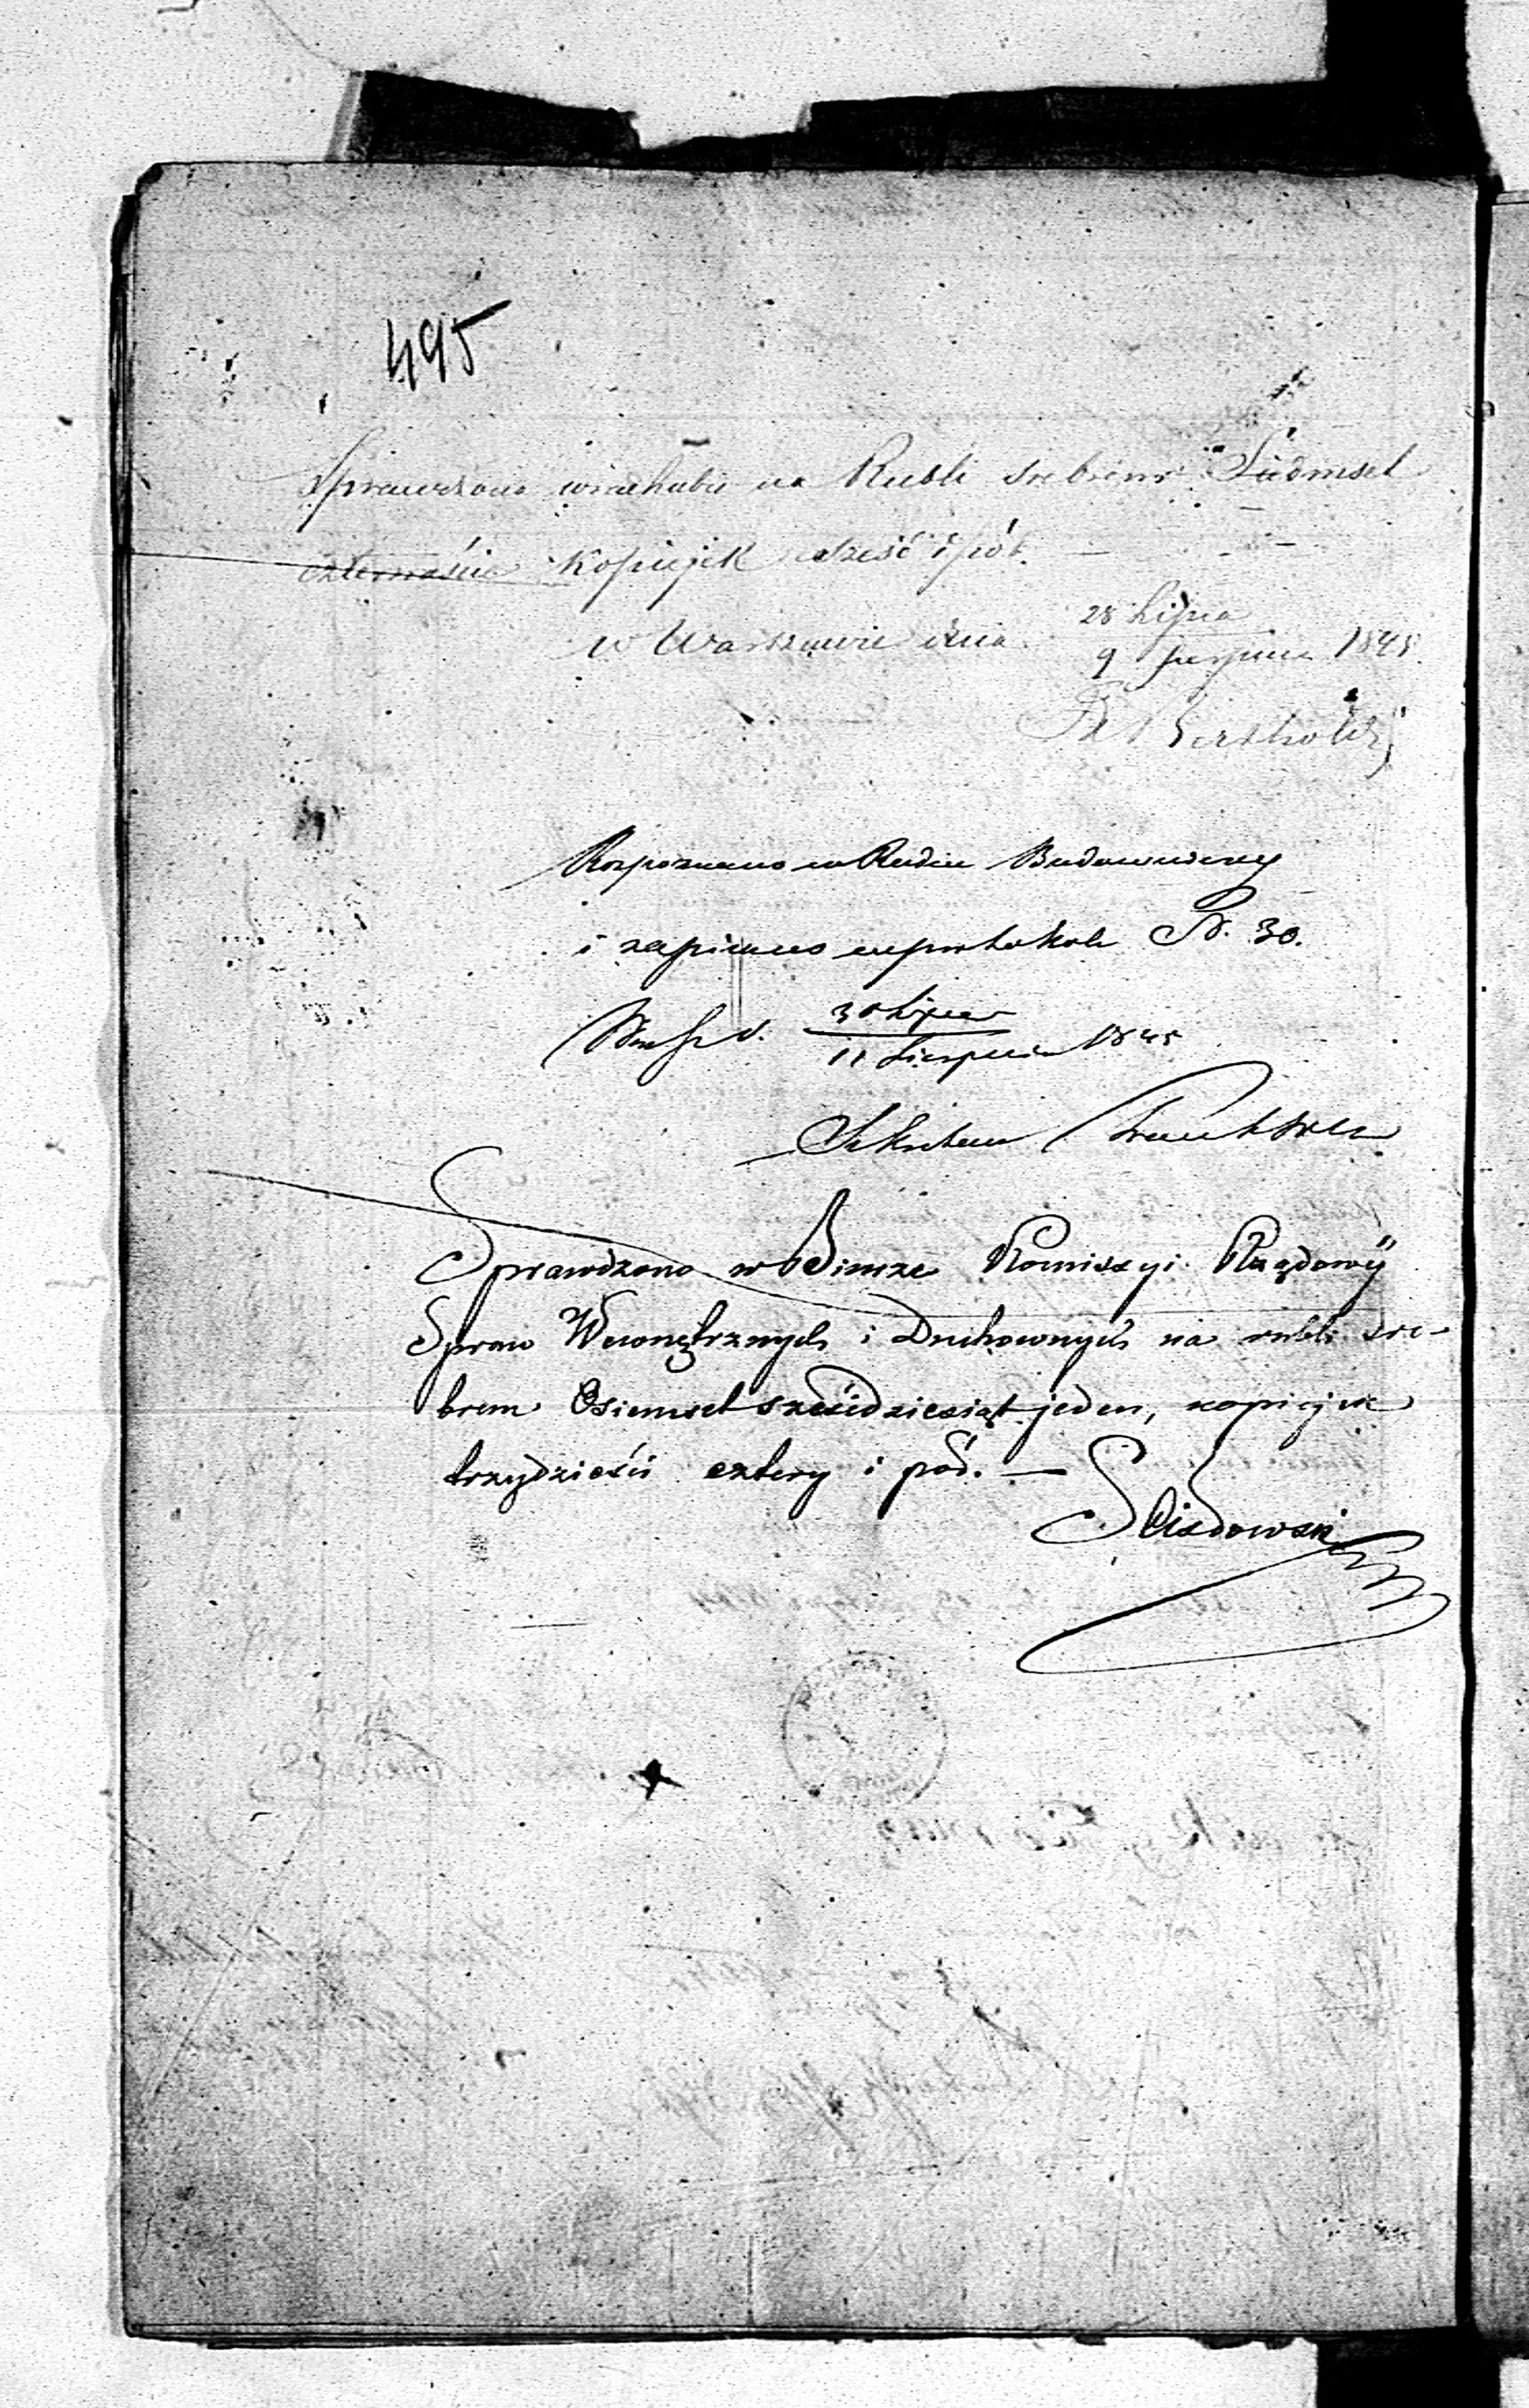 495
Sprawdzono w rachubie na Rubli srebrem Siedmset
czternaście kopiejek sześć i pół.
w Warszawie dnia 28 Lipca
9 Sierpnia 1845
Rozpoznano w Radzie Budowniczej
i zapisano w protokole N. 30.
30 Lipca
11 Sierpnia 1845
Sekretarz
Sprawdzono w Biurze Kommissyi Rządowÿ
Spraw Wewnętrznych i Duchownych na rubli sre-
brem Osiemset sześćdziesiąt jeden, kopiejek
trzydzieści cztery i pół. —